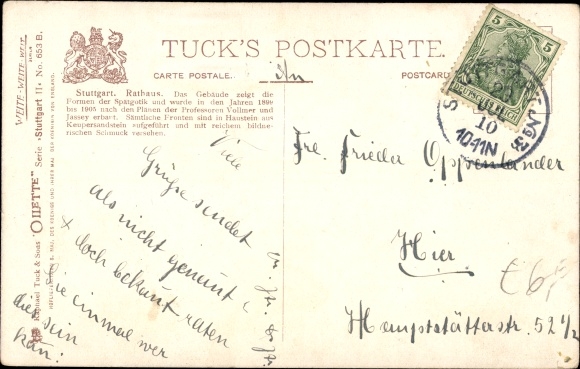 TUCK'S POSTKARTE.
CARTE POSTALE.
POSTCARD
Stuttgart. Rathaus. Das Gebäude zeigt die
Formen der Spätgotik und wurde in den Jahren 1899
bis 1905 nach den Plänen der Professoren Vollmer und
Jassoy erbaut. Sämtliche Fronten sind in Haustein aus
Keupersandstein aufgeführt und mit reichem bildne-
rischen Schmuck versehen.
WEITE-WEITE-WELT
BERLIN
Serie „Stuttgart II“ No. 653 B.
"OILETTE"
Raphael Tuck & Sons
5
5
DEUTSCHES REICH
10
10-11N
An
Frl. Frieda Oppenländer
Hier.
Hauptstätterstr. 52 1/2
€6,-
Viele
Grüße sendet
als nicht genannt
& doch bekannt raten
Sie einmal wer
dies sein
kan!